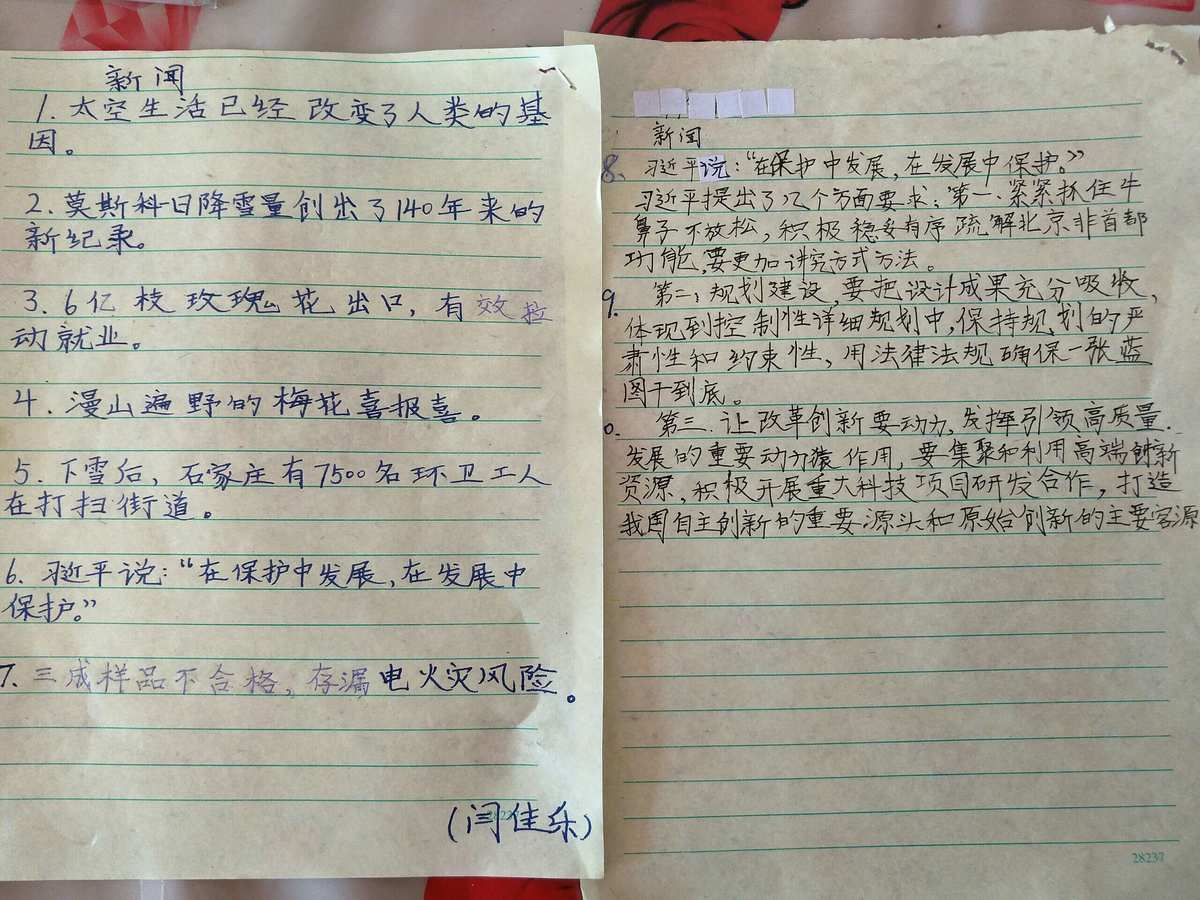 新闻
1. 太空生活已经改变了人类的基
因。
2. 莫斯科日降雪量创出了140年来的
新纪录。
3. 6亿枝玫瑰花出口,有效拉
动就业。
4. 漫山遍野的梅花喜报喜。
5. 下雪后,石家庄有7500名环卫工人
在打扫街道。
6. 习近平说:“在保护中发展,在发展中
保护。”
7. 三成样品不合格,存漏电火灾风险。
(闫佳乐)
新闻
8. 习近平说:“在保护中发展,在发展中保护。”
习近平提出了几个方面要求:第一、紧紧抓住牛
鼻子不放松,积极稳妥有序疏解北京非首都
功能,要更加讲究方式方法。
9. 第二:规划建设,要把设计成果充分吸收,
体现到控制性详细规划中,保持规划的严
肃性和约束性,用法律法规确保一张蓝
图干到底。
0. 第三、让改革创新要动力,发挥引领高质量
发展的重要动力源作用,要集聚和利用高端创新
资源,积极开展重大科技项目研发合作,打造
我国自主创新的重要源头和原始创新的主要客源
28237